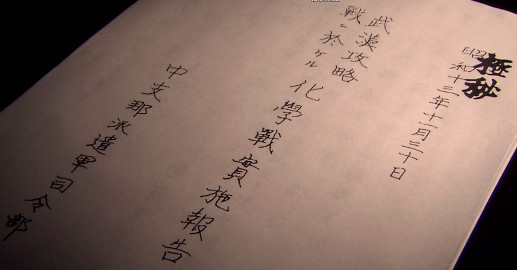 極秘
昭和十三年十一月三十日
武漢攻略
戰ニ於ケル
化學戰實施報告
中支那派遣軍司令部